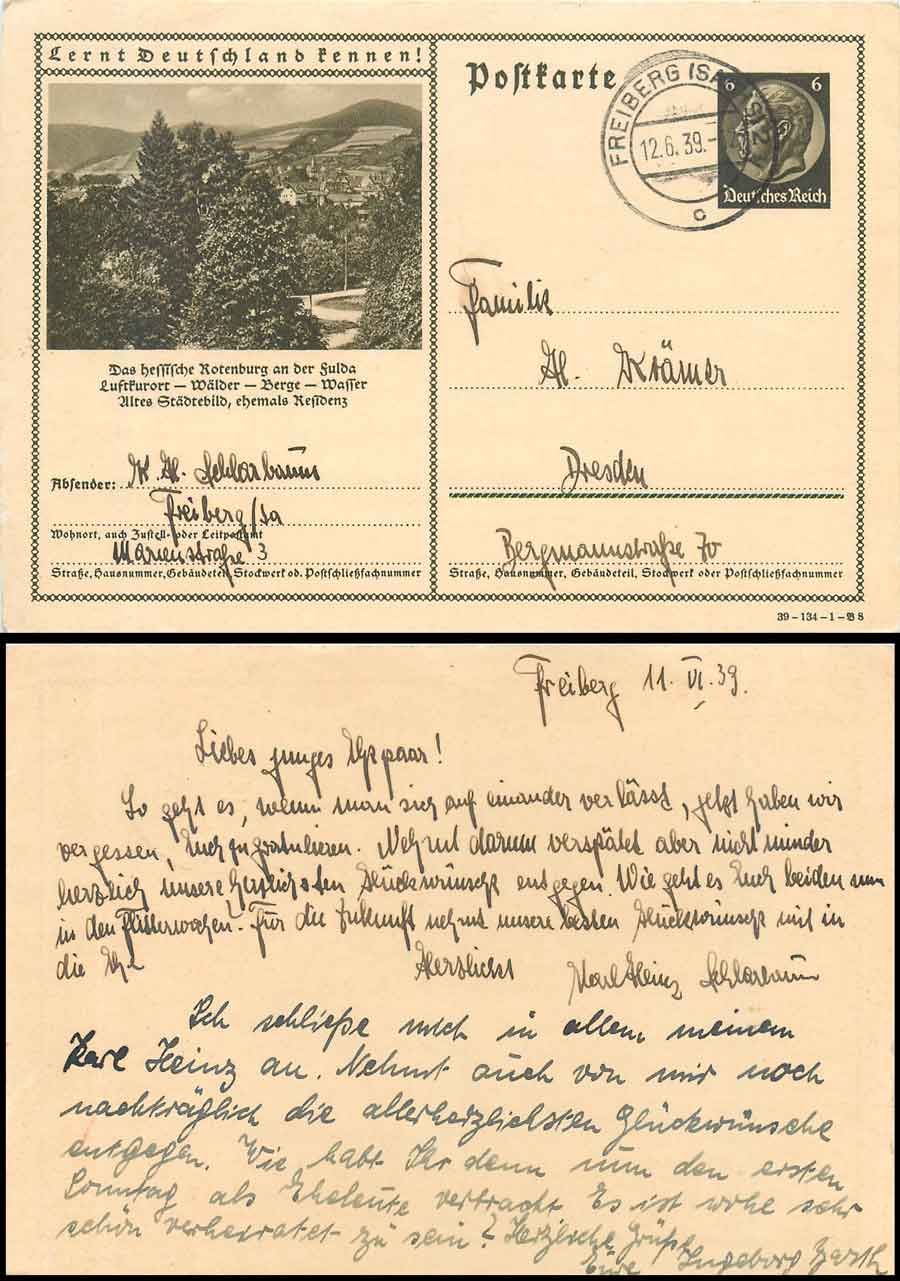 Lernt Deutschland kennen!
Das hessische Rotenburg an der Fulda
Luftkurort – Wälder – Berge – Wasser
Altes Städtebild, ehemals Residenz
Absender: K. H. Schlarbaum
Freiberg/Sa
Wohnort, auch Zustell- oder Leitpostamt
Marienstraße 3
Straße, Hausnummer, Gebäudeteil, Stockwerk od. Postschließfachnummer
Postkarte
FREIBERG (SACHS)2
12.6.39.-
c
6 6
Deutsches Reich
Familie
H. Krämer
Dresden
Bergmannstraße 70
Straße, Hausnummer, Gebäudeteil, Stockwerk oder Postschließfachnummer
39 – 134 – 1 – B 8
Freiberg 11. VI. 39.
Liebes junges Ehepaar!
So geht es, wenn man sich auf einander verlässt, jetzt haben wir
vergessen, Euch zu gratulieren. Nehmt darum verspätet aber nicht minder
herzlich unsere herzlichsten Glückwünsche entgegen. Wie geht es Euch beiden nun
in den Flitterwochen? Für die Zukunft nehmt unsere besten Glückwünsche mit in
die Ehe
Herzlichst Karl Heinz Schlarbaum
Ich schließe mich in allem meinem
Karl Heinz an. Nehmt auch von mir noch
nachträglich die allerherzlichsten Glückwünsche
entgegen. Wie habt Ihr denn nun den ersten
Sonntag als Eheleute verbracht. Es ist wohl sehr
schön verheiratet zu sein? Herzliche Grüße
Eure Ingeborg